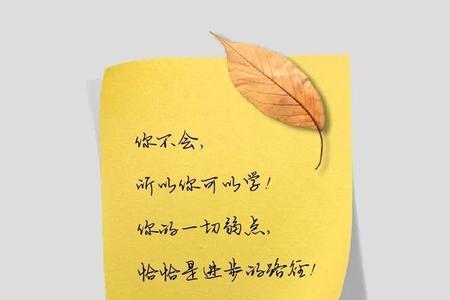 你不会，
所以你可以学！
你的一切弱点，
恰恰是进步的路径！